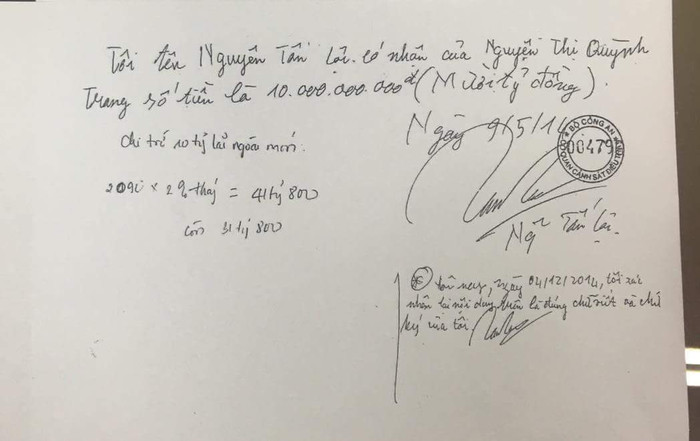 Tôi tên Nguyễn Tấn Lợi. có nhận của Nguyễn Thị Quỳnh
Trang số tiền là 10.000.000.000đ (Mười tỷ đồng).
Chị trả 10 tỷ lãi ngoài
Ngày 9/5/14
BỘ CÔNG AN
00479
CƠ QUAN CẢNH SÁT ĐIỀU TRA
2090 × 2% tháj = 41 tỷ 800
còn 31 tỷ 800
Ng Tấn Lợi.
ngày 04/12/2014, tôi xác
nhận lại nội dung trên là đúng chữ viết và chữ
ký của tôi